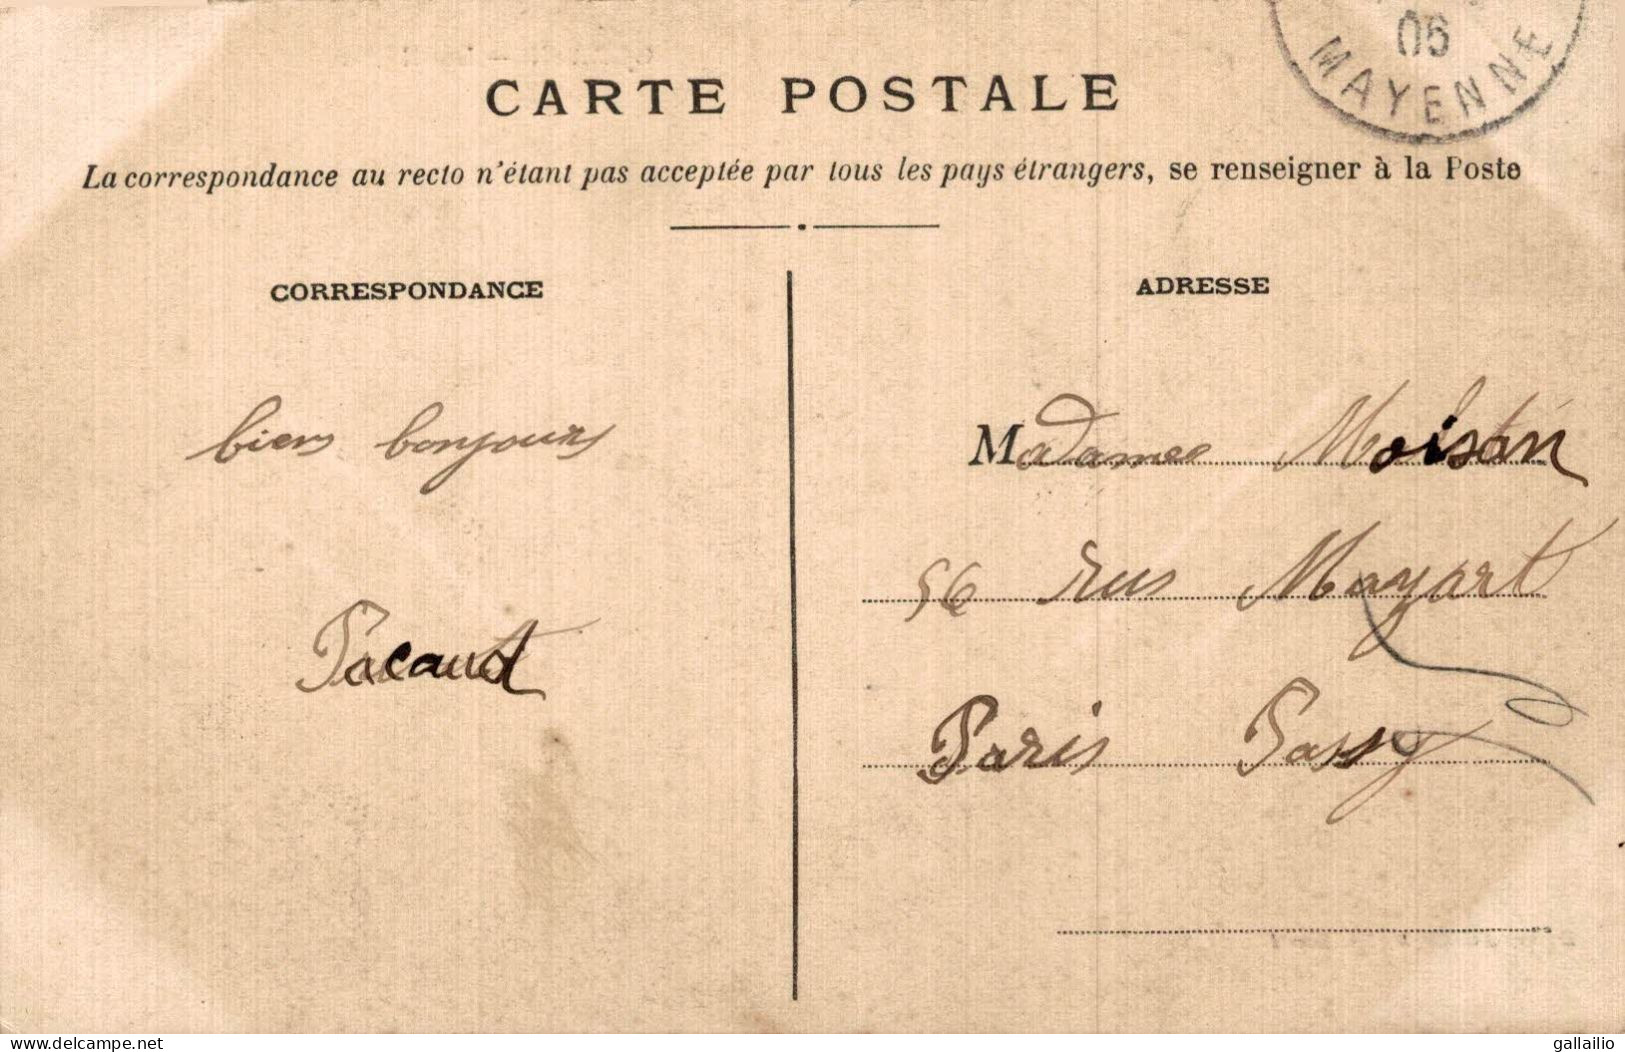 06
MAYENNE
CARTE POSTALE
La correspondance au recto n'étant pas acceptée par tous les pays étrangers, se renseigner à la Poste
CORRESPONDANCE
ADRESSE
biens bonjours
Pacaud
Madame Moisan
56 rue Mozart
Paris Passy
www.delcampe.net
gallailio